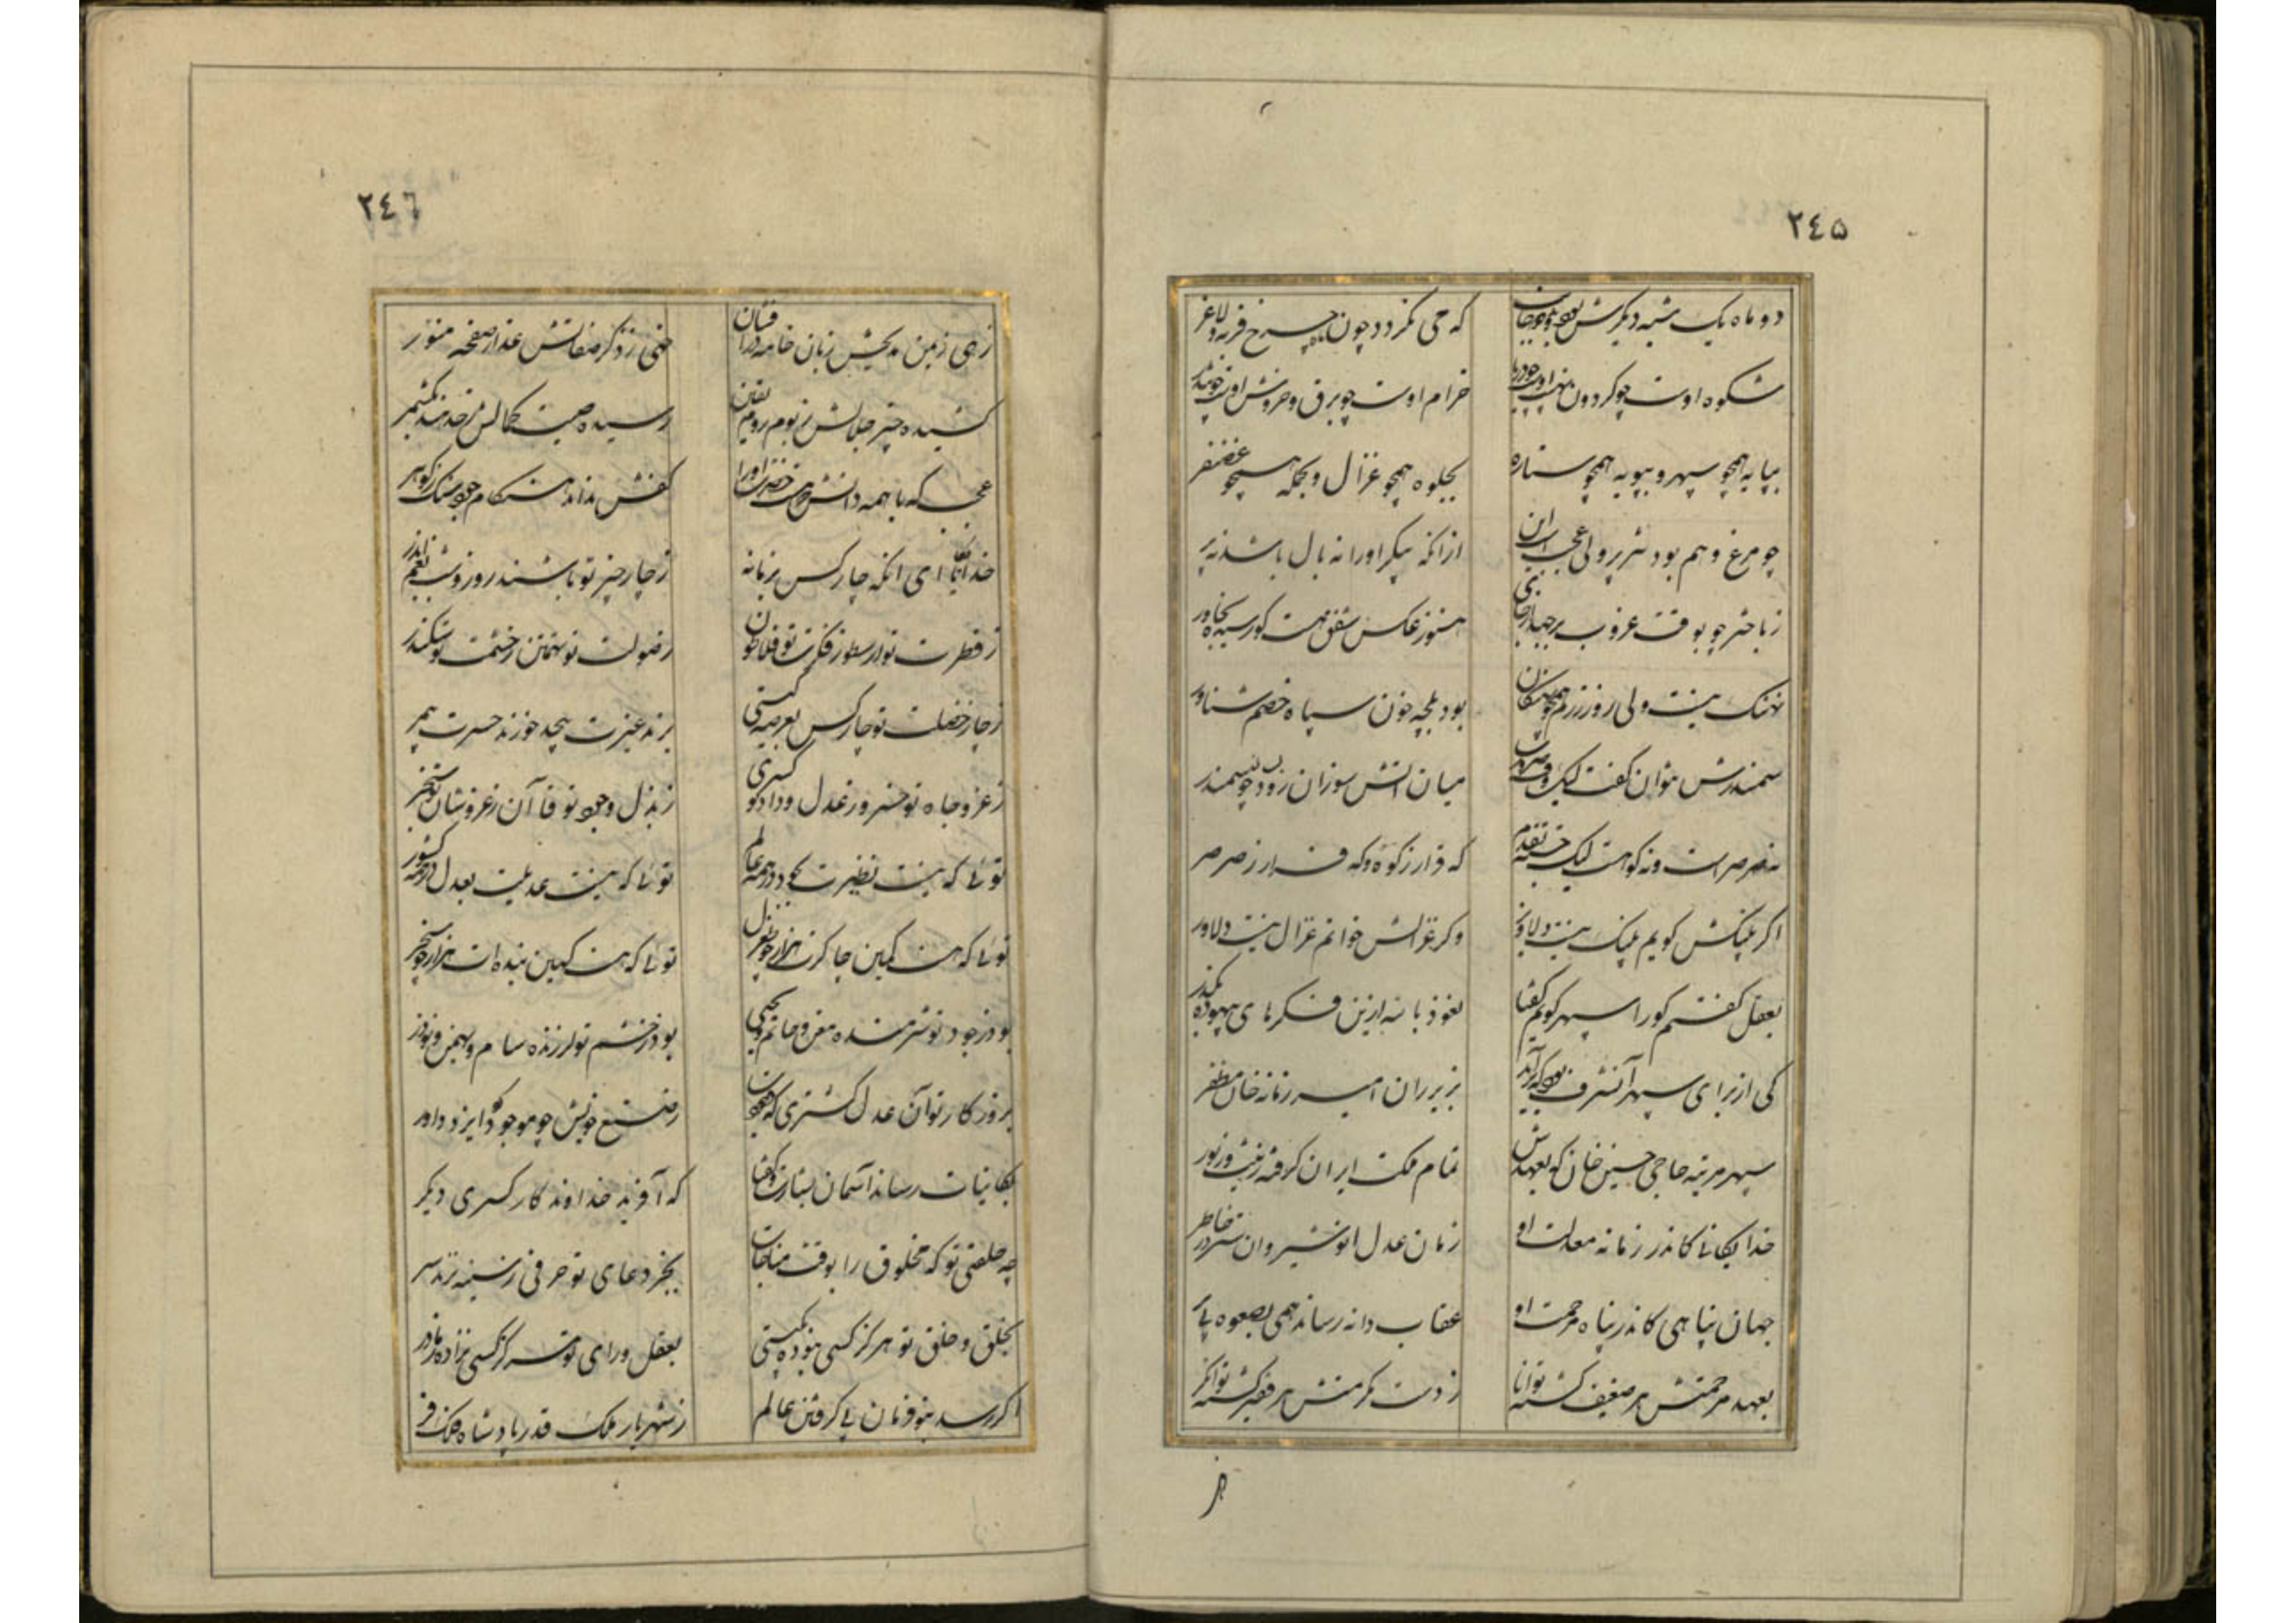 ٢٤٥
دو ماه یک شبه دیگرش
که حی نکردد چون ماه چرخ فربه و لاغر
شکوه اوست چو کردون
خرام اوست چو برق و خروش اوست چو تندر
بپایه همچو سپهر و بپویه همچو ستاره
بجلوه همچو غزال و بحمله همچو غضنفر
چو مرغ وهم بود تیز پر ولی عجب است این
از آنکه پیکر او را نه بال باشد نه پر
ز باختر چو بوقت غروب بر جهد از جای
هنوز عکس شفق هست کو رسد بخاور
نهنک نیست ولی روز رزم همچو نهنکان
بود بلجه خون سپاه خصم شناور
سمندرش نتوان کفت لیک
میان اتش سوزان رود چو سمندر
نه صرصر است و نه کوه است لیک
که وقار ز کوه و که فرار ز صرصر
اکر پلنکش کویم پلنک نیست دلاویز
و کر غزالش خوانم غزال نیست دلاور
بعقل کفتم کو را سپهر کویم کفتا
نعوذ بالله ازین فکرهای بیهوده بکذر
کی از برای سپهر آن شرف بود که برآید
بزیر ران امیر زمانه خان مظفر
سپهر مرتبه حاجی حسین خان که بعهدش
تمام مملکت ایران کرفته زینت و زیور
خدایکانی کاندر زمانه معدلت او
زمان عدل انوشیروان سترد ز خاطر
جهان پناهی کاندر پناه مرحمت او
عقاب دانه رساند همی بصعوه بی پر
بعهد مرحمتش هر ضعیف کشته توانا
ز دست مکرمتش هر فقیر کشته توانکر
٢٤٦
زهی ز یمن مدیحش زبان خامه در افشان
خهی ز ذکر صفاتش عذار صفحه منور
کشیده چتر جلالش ز بوم روم
رسیده صیت کمالش ز حد هند بکشمر
عجب که با همه دانش که هست حضرت او را
کفش نداند هنکام جود سنک ز کوهر
خدایکانا ای آنکه چار کس بزمانه
ز چار چیز تو باشند روز و شب بغم اندر
ز فطرت تو ارسطو ز فکرت تو فلاطون
ز صولت تو تهمتن ز حشمت تو سکندر
ز چار خصلت تو چار کس بعرصه کیتی
برند غیرت بیحد خورند حسرت بیمر
ز عز و جاه تو خسرو ز عدل و داد تو کسری
ز بذل وجود تو قاآن ز عز و شان تو سنجر
توئی که نیست نظیرت بجود در همه عالم
توئی که نیست عدیلت بعدل در همه کشور
توئی که هست کمین چاکرت هزار چو طغرل
توئی که هست کهین بنده ات هزار چو سنجر
بود ز جود تو شرمنده معن و حاتم و یحیی
بود ز خشم تو لرزنده سام و بهمن و نوذر
بروز کار تو آن عدل کستری که
ز صنع خویش چو موجود کرد ایزد داور
بکاینات رساند آسمان بشارت و کفتا
که آفرید خداوند کار کسری دیکر
چه خلقتی تو که مخلوق را بوقت مناجات
بجز دعای تو حرفی ز سینه نزند سر
بخلق و خلق تو هرکز کسی نبوده بکیتی
بعقل و رای تو هرکز کسی نزاده ز مادر
اکر رسد بتو فرمان پی کرفتن عالم
ز شهریار ملک قدر پادشاه فلک فر